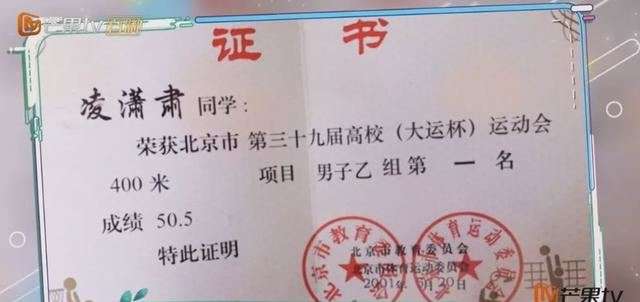 芒果tv
证书
凌潇肃同学:
荣获北京市 第三十九届高校(大运杯)运动会
400米 项目 男子乙组第一名
成绩 50.5
特此证明
北京市教育委员会
北京市体育运动委员会
2001年 月20日
芒果tv